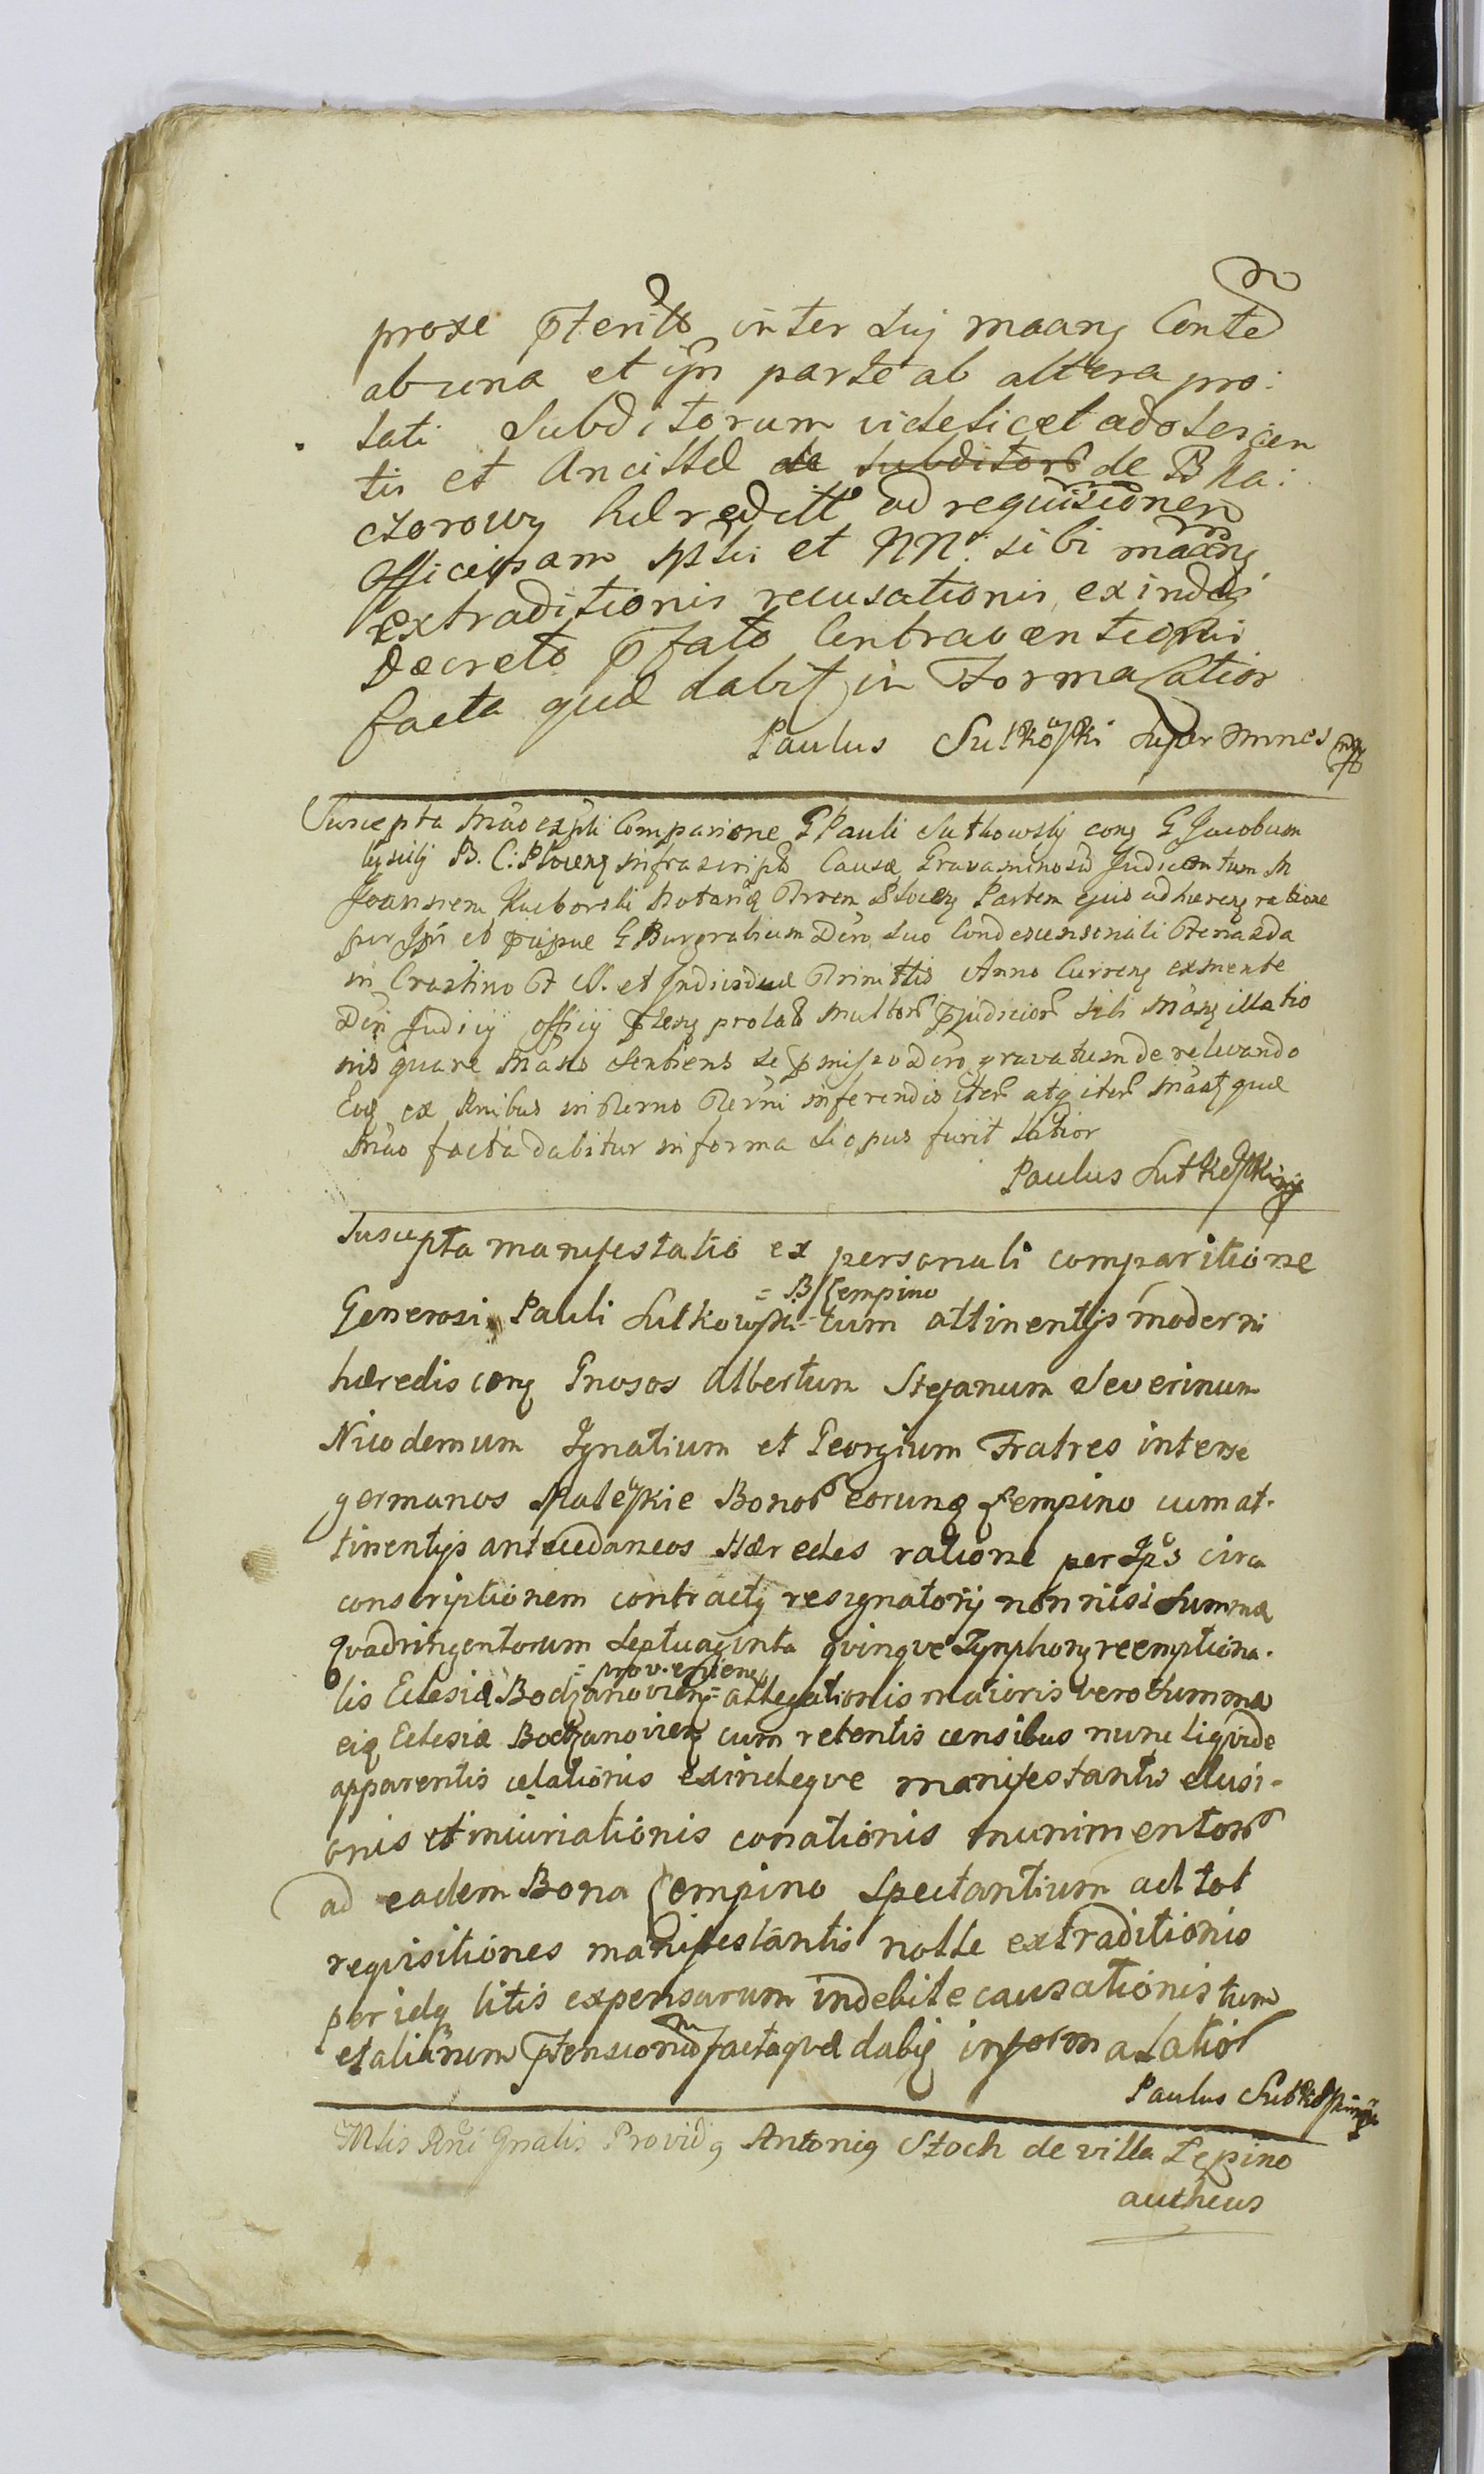 proxe pterito inter suj maang Conte
ab una et ipn parte ab altera pro:
lati Subditorum videlicet adolescen
tis et Ancillæ de subditors de B Ka:
czorowy hæredittr ad requisitionem
Officiosam sptlis et NNr. sibi maang
extraditionis recusationis, exindeq
Decreto pfato Contraventionis
facta quæ dabit in Forma latior
Paulus Sutkowski super mnes mpp
Suscepta Mtao ex psli Comparione G Pauli Sutkowskij cong G Jacobum
B. C: Plocen infrascripto Causæ Gravaminosæ Judicantum M
Joannem Kuborski Notariū Trrem Plocen Partem ejus adhæreng ratione
per Ipn et G Burgrabium Dcro suo Condescensionali
in Crastino et Individuæ Trinittis Anno Currenz exmente
Dcri Judicij officij prolato multors pjudiciors sibi Mang illatio
nis quare Mans sentiens se pmisso Dcro gravatum de relevando
Eoq ex in Terno inferendis iters atq iters Maat quæ
Mtao facta dabitur in forma si opus fuerit latior
Paulus Sutkowski mp
Suscepta manifestatio ex personali comparitione
= B Cempino
Generosi Pauli Sutkowski = tum attinentijs moderni
hæredis cong Gnosos Albertum Stefanum Severinum
Nicodemum Ignatium et Georgium Fratres interse
germanos Bonors eorunq Cempino cum at-
tinentijs antecedaneos Hæredes ratione per Ipos circa
conscriptionem contractq resignatorij non nisi summæ
quadringentorum septuaginta quinque Tymphong reemptiona-
= provenieng
lis Eclesiæ Bodzanovien = allegationis maioris vero summæ
eiq Eclesiæ Bodzanovieng cum retentis censibus nunc liquide
apparentis celationis exindeque manifestantis elusi-
onis et iniuriationis conationis munimentors
ad eadem Bona Cempino spectantium ad tot
requisitiones manifestantis nolle extraditionis
per idq litis expensarum indebite causationis tum
et aliarum ptensionū facta quæ dabiť in forma latior
Paulus Sutkowski mp
Mtis Rni Gnalis Providq Antoniq Stoch de villa Lępino